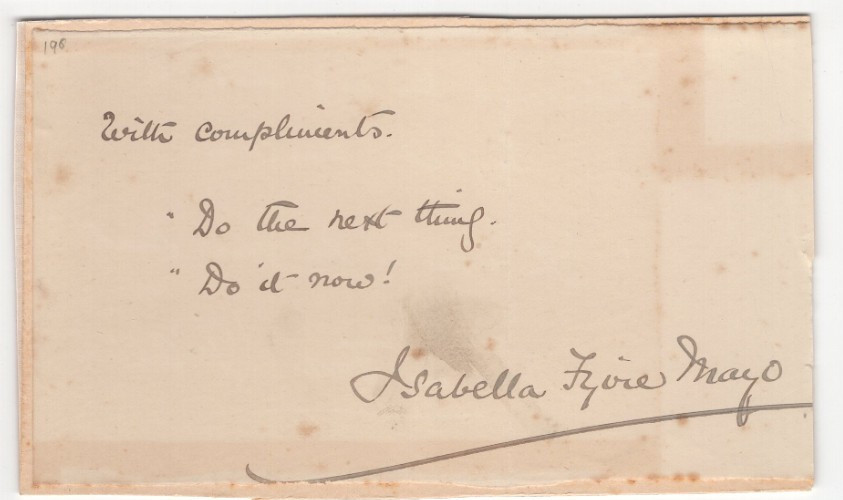 196
With compliments.
"Do the next thing.
"Do it now!
Isabella Fyvie Mayo